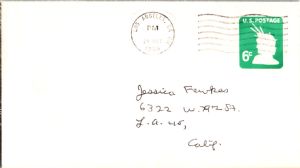 LOS ANGELES, CA
PM
U.S. POSTAGE
6¢
Jessica Fewkas
6322 W. 79 St.
L.A. 45,
Calif.